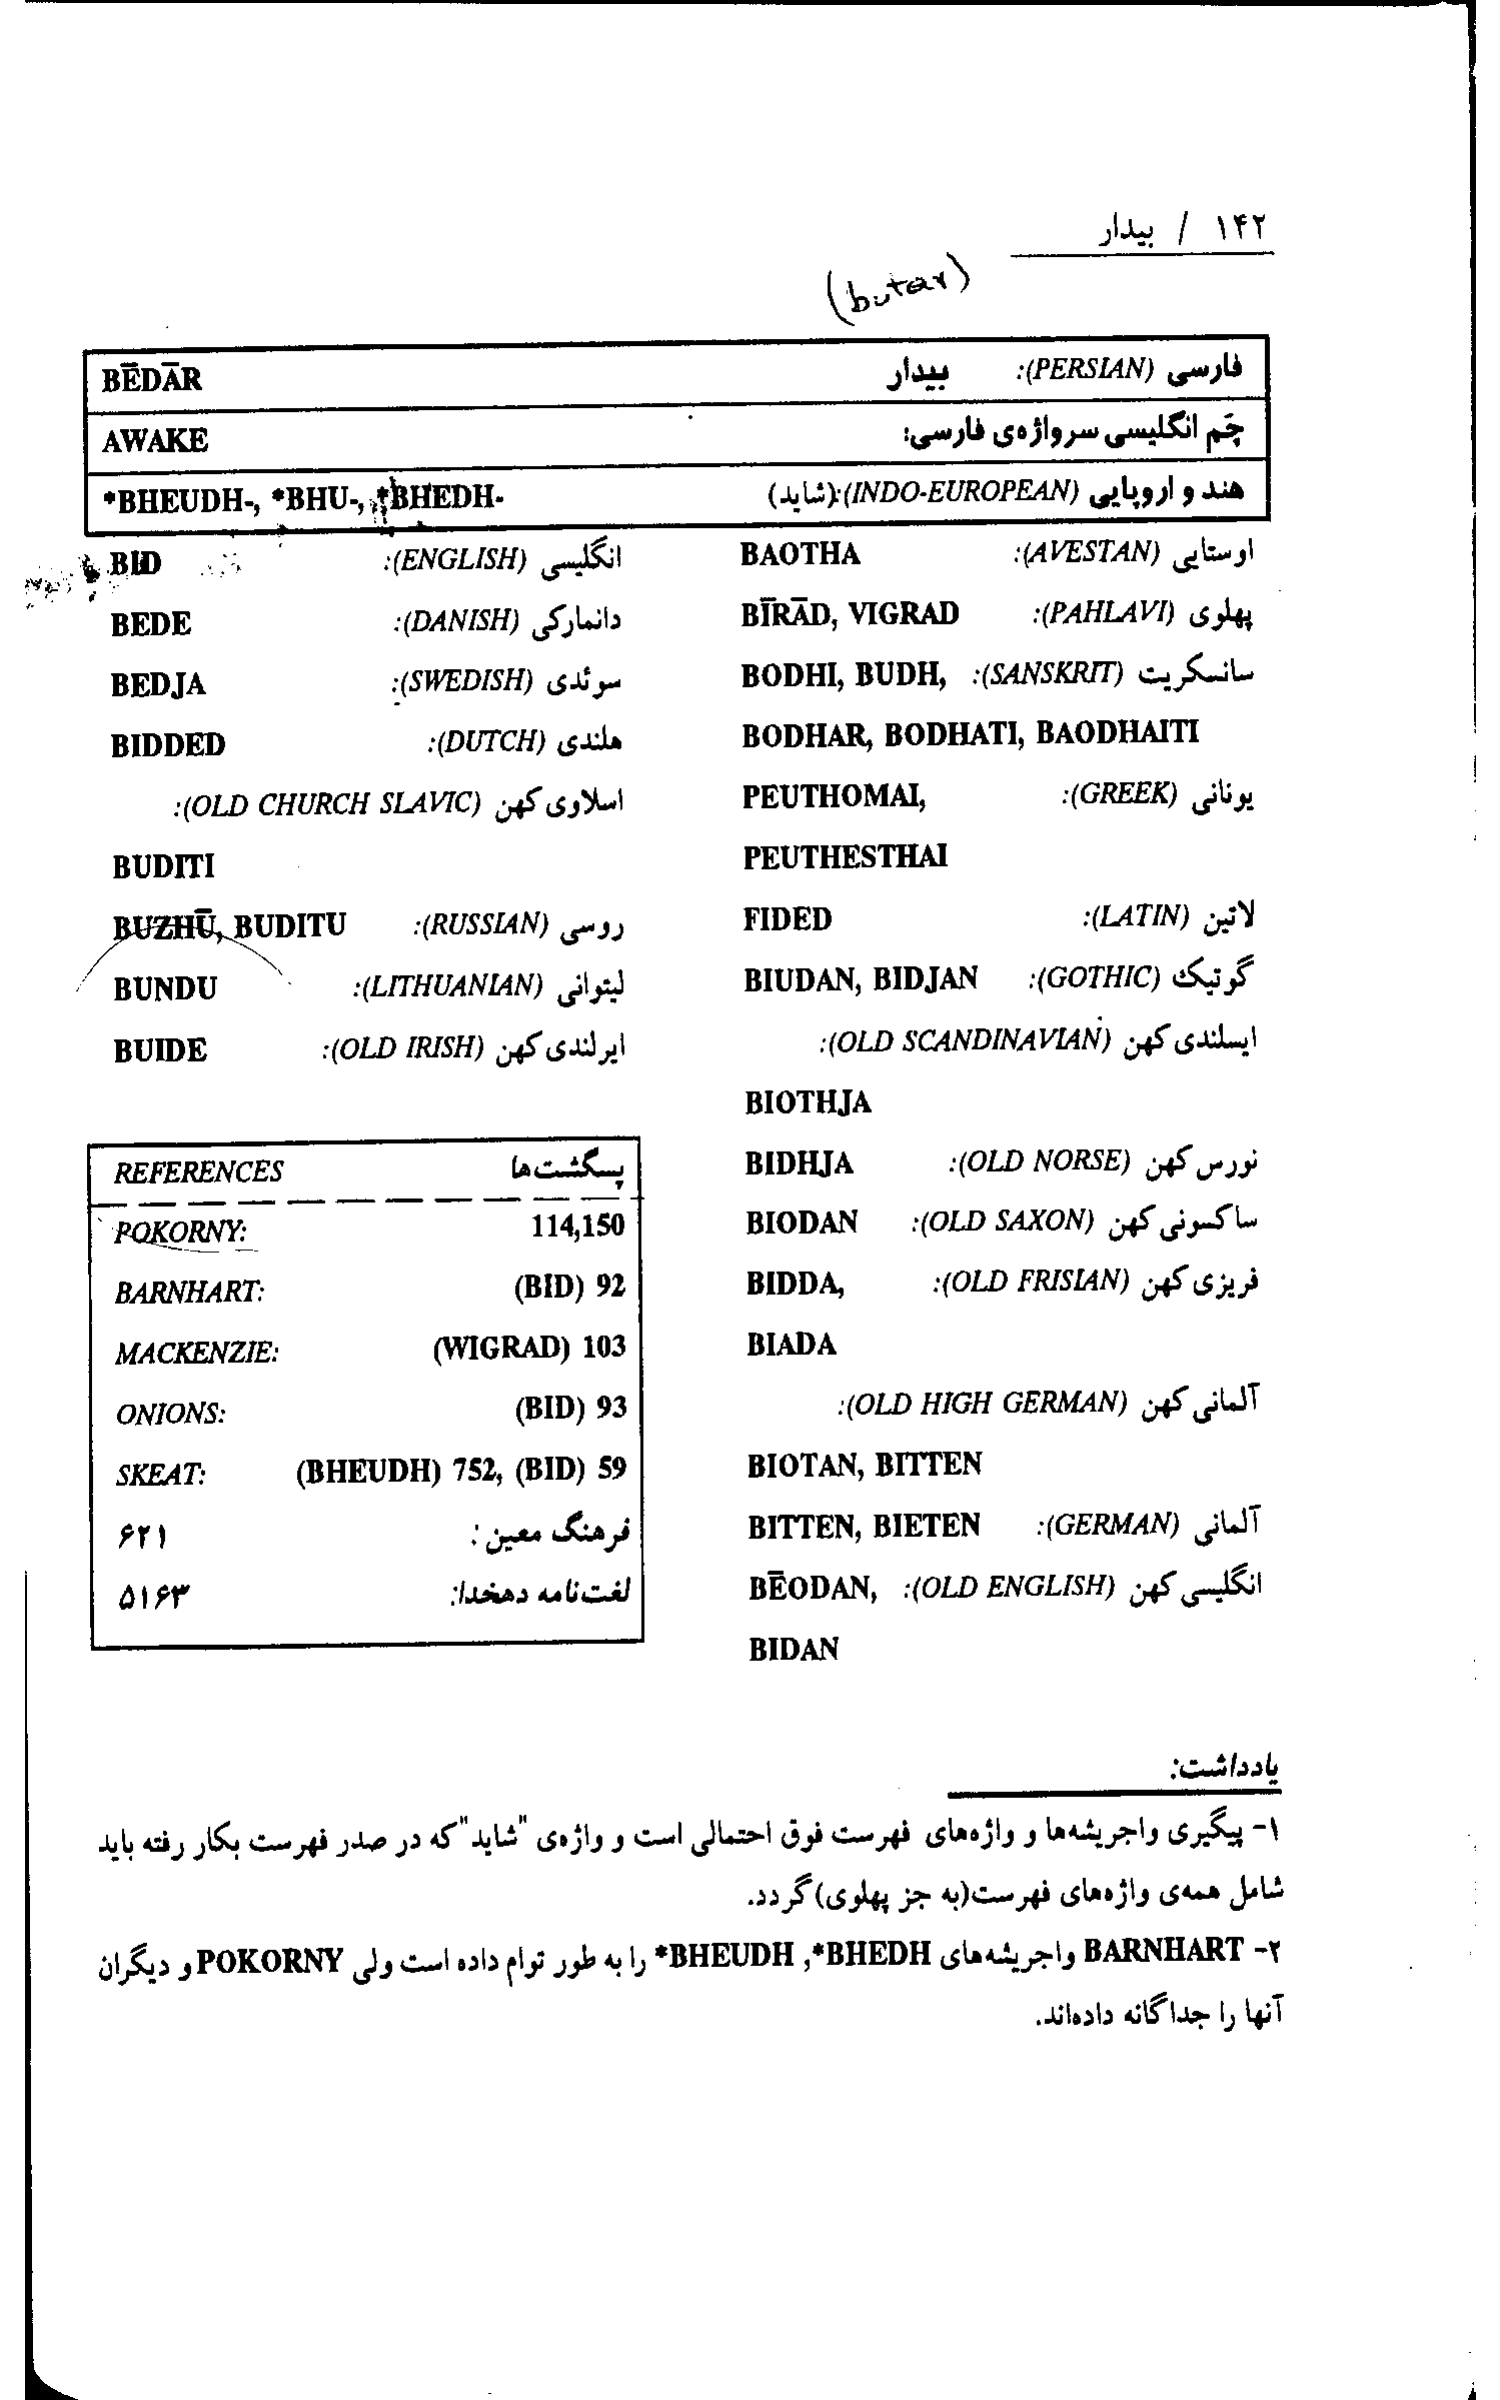 ۱۴۲ / بیدار
(butar)
فارسی (PERSIAN): بیدار BĒDĀR
چَم انگلیسی سرواژه‌ی فارسی: AWAKE
هند و اروپایی (INDO-EUROPEAN):(شاید) *BHEUDH-, *BHU-, *BHEDH-
اوستایی (AVESTAN): BAOTHA
پهلوی (PAHLAVI): BĪRĀD, VIGRAD
سانسکریت (SANSKRIT): BODHI, BUDH,
BODHAR, BODHATI, BAODHAITI
یونانی (GREEK): PEUTHOMAI,
PEUTHESTHAI
لاتین (LATIN): FIDED
گوتیک (GOTHIC): BIUDAN, BIDJAN
ایسلندی کهن (OLD SCANDINAVIAN):
BIOTHJA
نورس کهن (OLD NORSE): BIDHJA
ساکسونی کهن (OLD SAXON): BIODAN
فریزی کهن (OLD FRISIAN): BIDDA,
BIADA
آلمانی کهن (OLD HIGH GERMAN):
BIOTAN, BITTEN
آلمانی (GERMAN): BITTEN, BIETEN
انگلیسی کهن (OLD ENGLISH): BĒODAN,
BIDAN
انگلیسی (ENGLISH): BID
دانمارکی (DANISH): BEDE
سوئدی (SWEDISH): BEDJA
هلندی (DUTCH): BIDDED
اسلاوی کهن (OLD CHURCH SLAVIC):
BUDITI
روسی (RUSSIAN): BUZHŪ, BUDITU
لیتوانی (LITHUANIAN): BUNDU
ایرلندی کهن (OLD IRISH): BUIDE
پسگشت‌ها REFERENCES
POKORNY: 114,150
BARNHART: (BID) 92
MACKENZIE: (WIGRAD) 103
ONIONS: (BID) 93
SKEAT: (BHEUDH) 752, (BID) 59
فرهنگ معین: ۶۲۱
لغت‌نامه دهخدا: ۵۱۶۳
یادداشت:
۱- پیگیری واجریشه‌ها و واژه‌های فهرست فوق احتمالی است و واژه‌ی "شاید" که در صدر فهرست بکار رفته باید
شامل همه‌ی واژه‌های فهرست(به جز پهلوی)گردد.
۲- BARNHART واجریشه‌های BHEDH*, BHEUDH* را به طور توام داده است ولی POKORNY و دیگران
آنها را جداگانه داده‌اند.